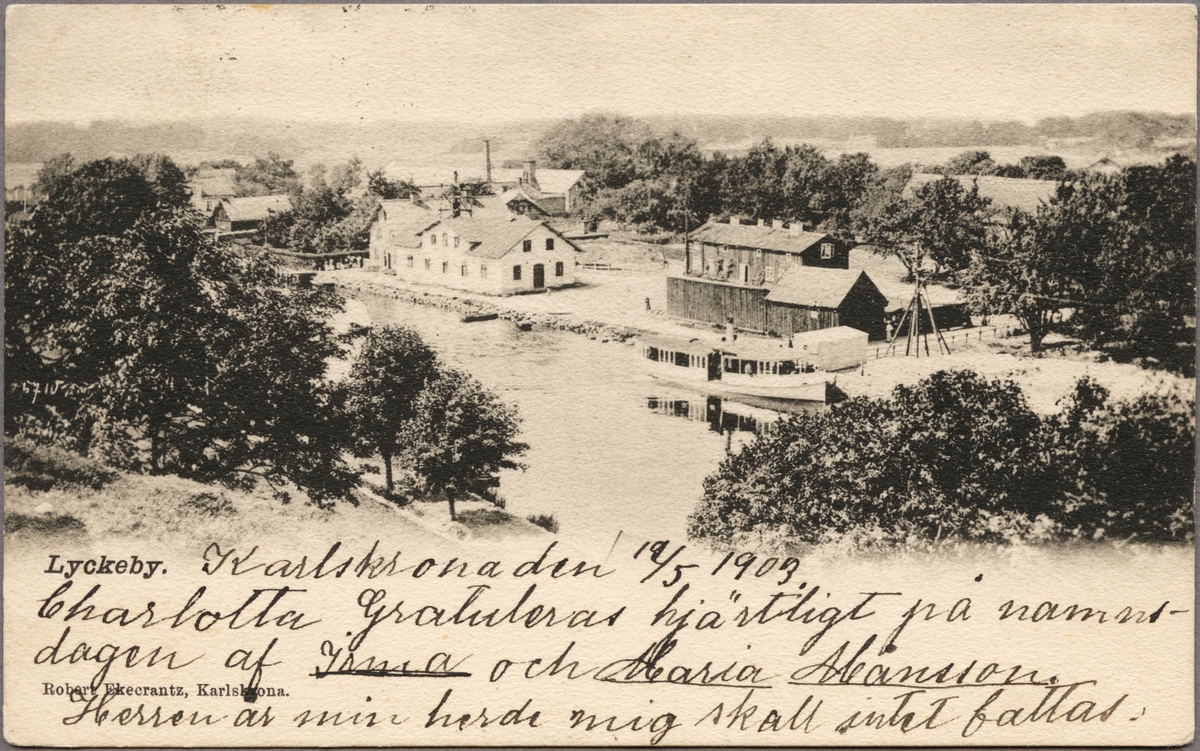 Lyckeby. Karlskrona den 12/5 1903
Charlotta Gratuleras hjärtligt på namns-
dagen af Irma och Maria Månsson.
Robert Ekecrantz, Karlskrona.
Herren är min herde mig skall intet fattas.